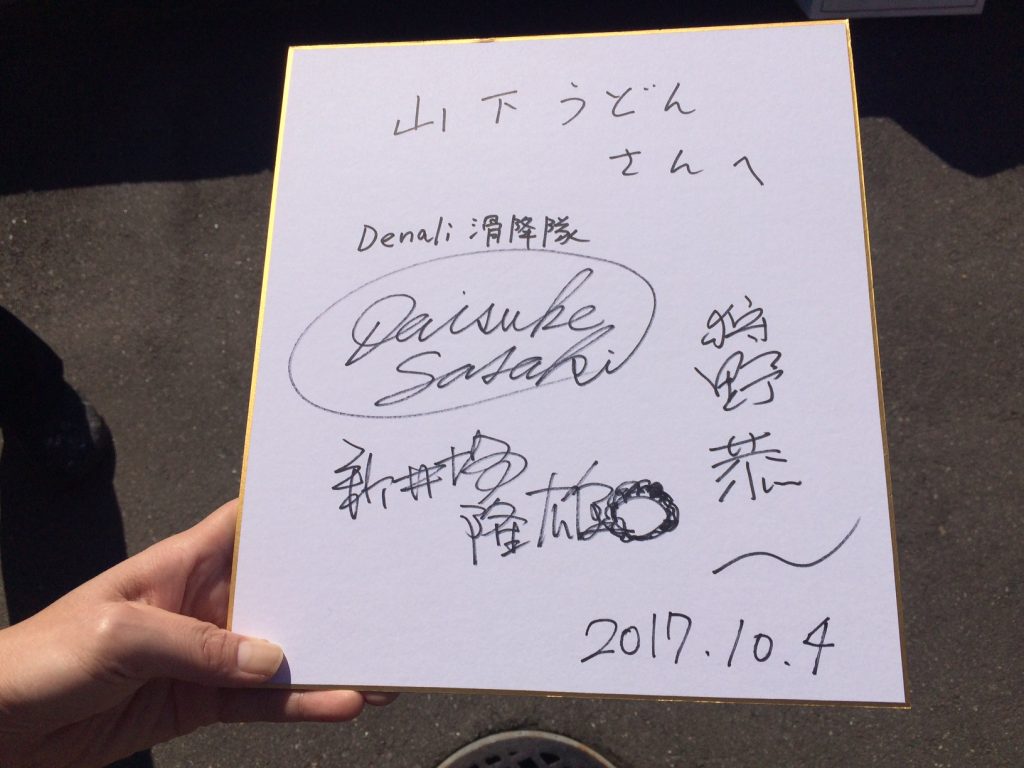 山下うどん
さんへ
Denali 滑降隊
Daisuke
Sasaki
狩野恭一
新井場
隆雄
2017.10.4